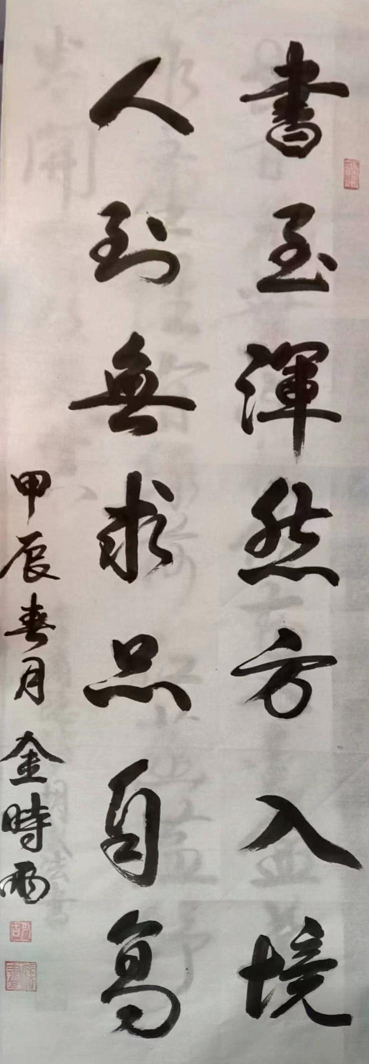 書至渾然方入境
人到無求品自高
甲辰春月 金時雨